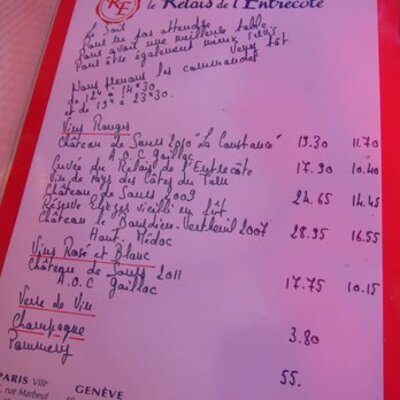 RE le Relais de l'Entrecôte
Le Soir
Pour ne pas attendre
Pour avoir une meilleure table
Pour être également mieux servis
Venez tôt
Nous prenons les commandes
de 12h à 14h30
et de 19h à 23h30.
Vins Rouges
Château de Saurs 2010 "La Constance" 19.30 11.70
A.O.C Gaillac
Cuvée du Relais de l'Entrecôte 17.90 10.40
Vin de Pays des Côtes du Tarn
Château de Saurs 2009 24.65 14.45
Réserve Eliezes vieilli en fût
Château le Bourdieu-Vertheuil 2007 28.95 16.55
Haut-Médoc
Vins Rosé et Blanc
Château de Saurs 2011 17.75 10.15
A.O.C Gaillac
Verre de Vin 3.80
Champagne
Pommery 55.
PARIS VIIIe GENÈVE
rue Marbeuf